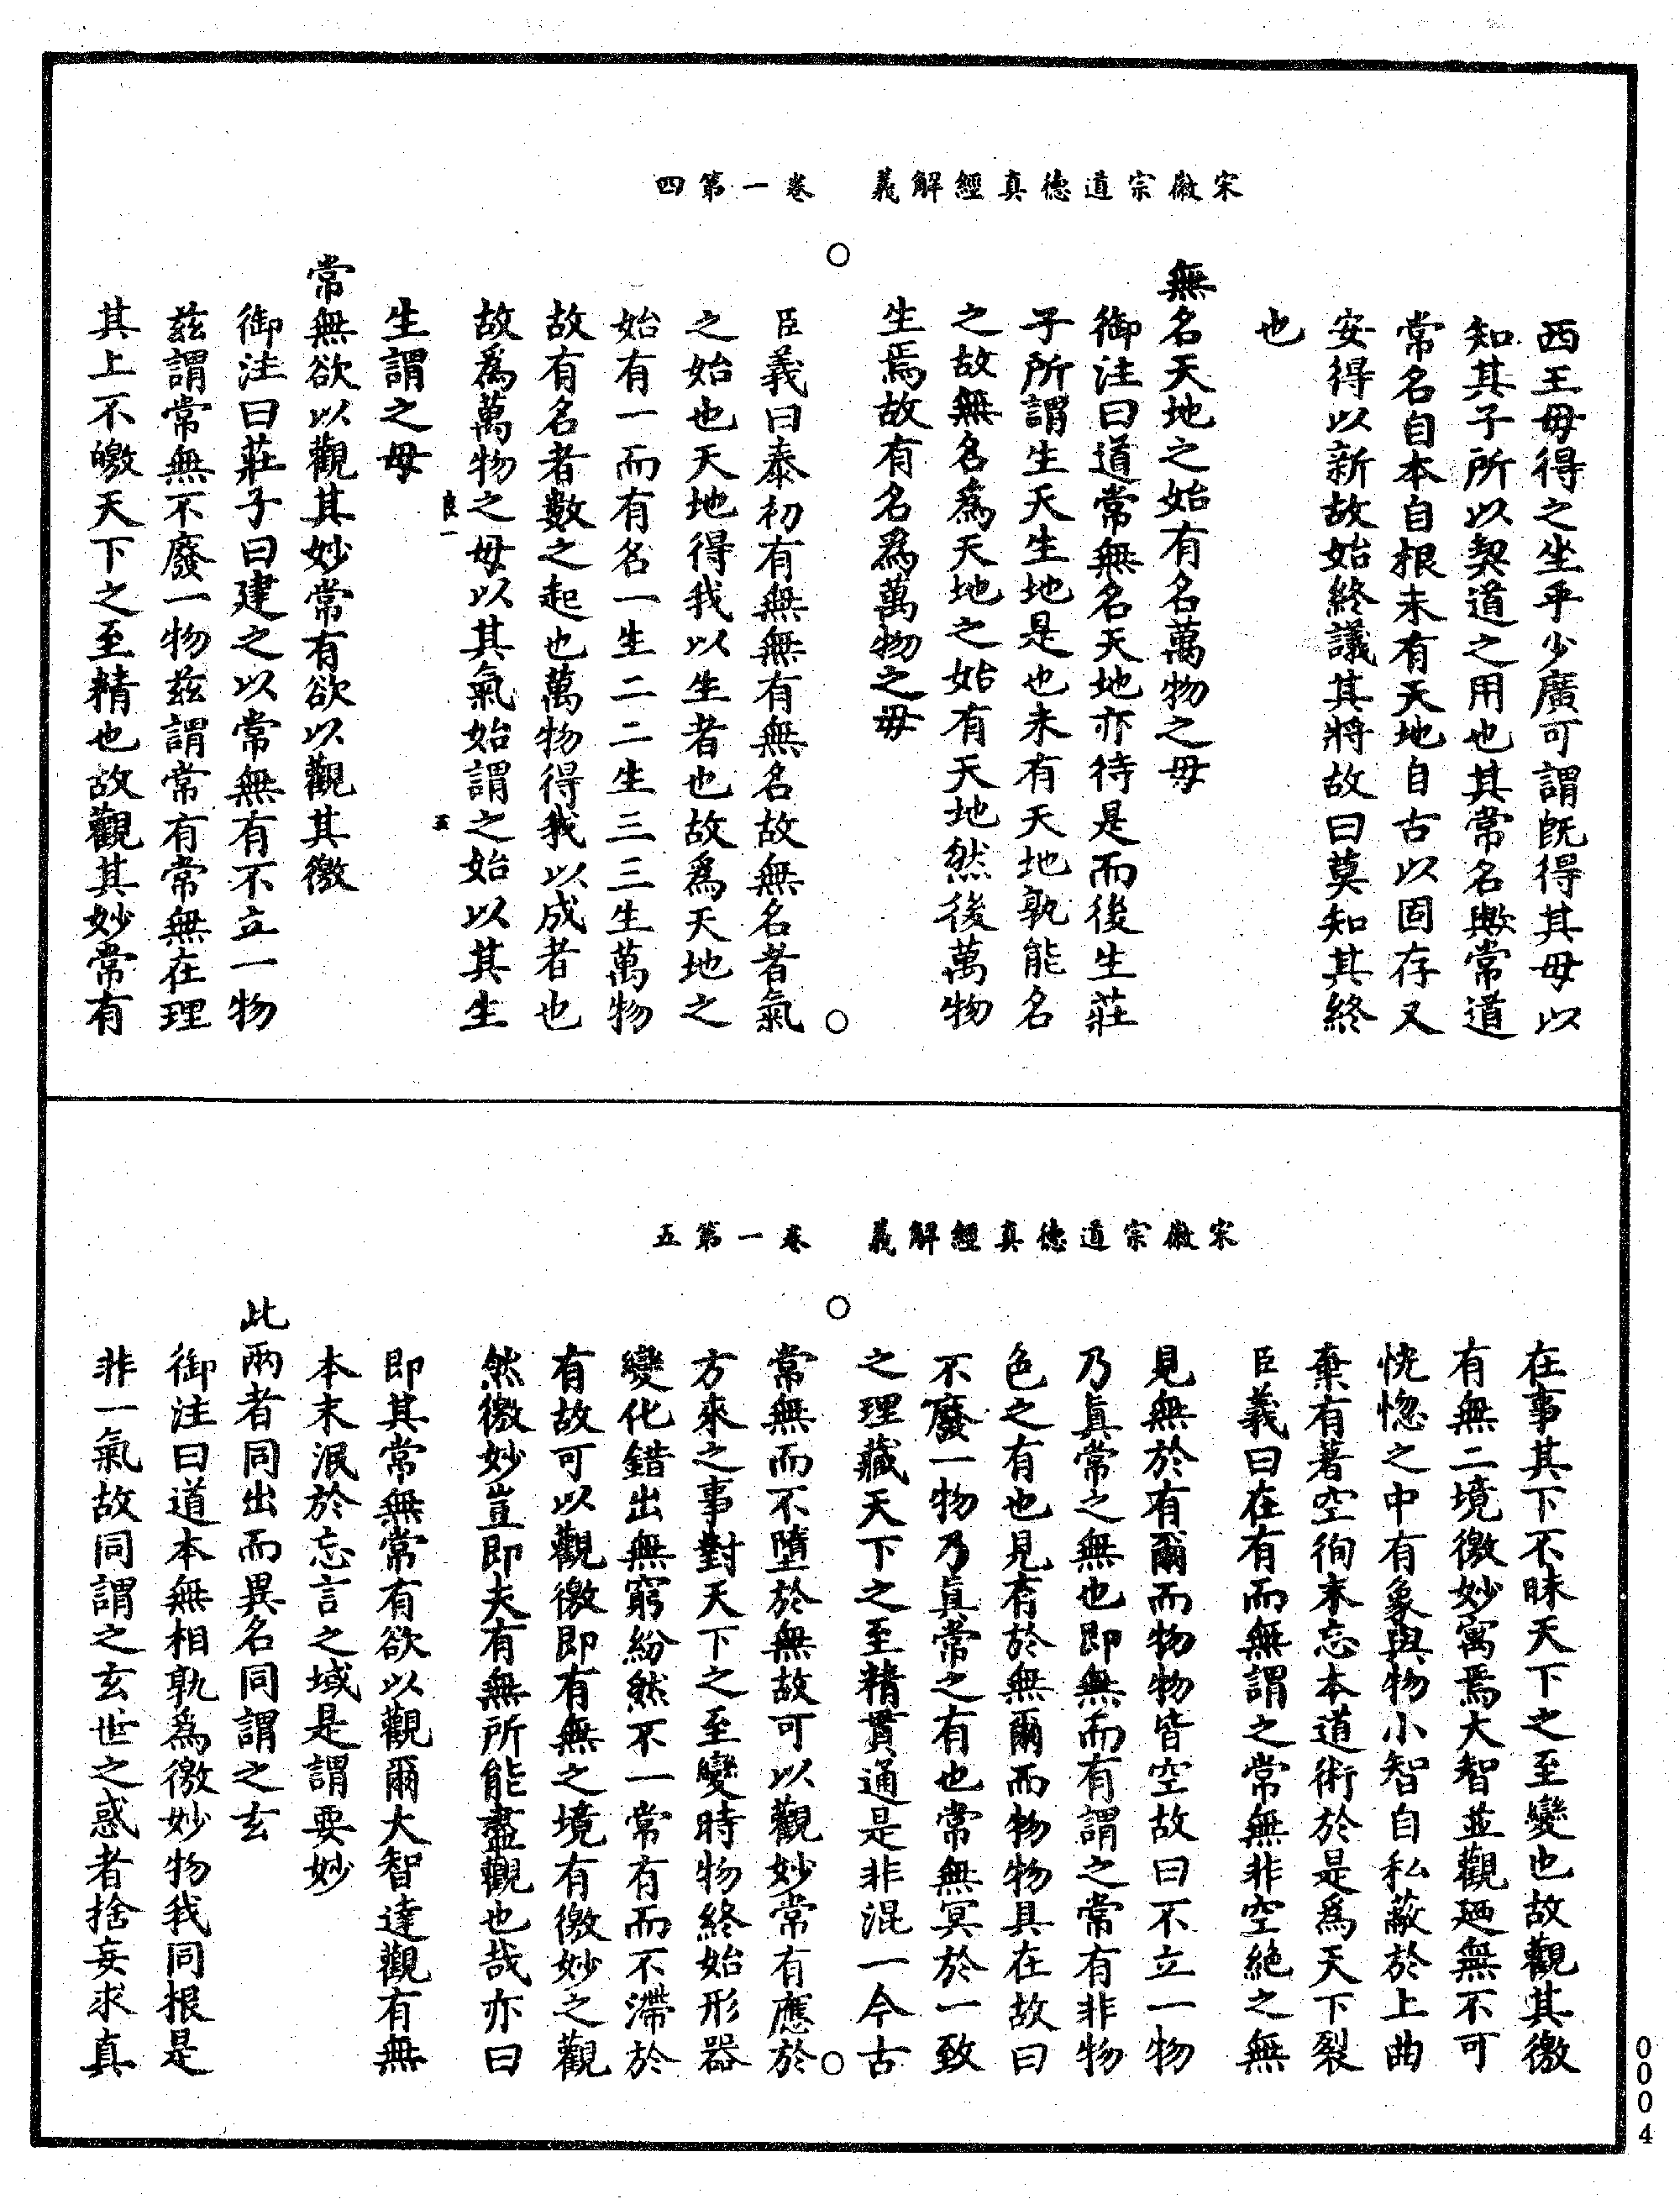 宋徽宗道德真經解義　卷一第四
西王母得之坐乎少廣可謂既得其母以
知其子所以契道之用也其常名與常道
常名自本自根未有天地自古以固存又
安得以新故始終議其將故曰莫知其終
也
無名天地之始有名萬物之母
御注曰道常無名天地亦待是而後生莊
子所謂生天生地是也未有天地孰能名
之故無名為天地之始有天地然後萬物
生焉故有名為萬物之母
臣義曰泰初有無無有無名故無名者氣
之始也天地得我以生者也故為天地之
始有一而有名一生二二生三三生萬物
故有名者數之起也萬物得我以成者也
故為萬物之母以其氣始謂之始以其生
良一　五
生謂之母
常無欲以觀其妙常有欲以觀其徼
御注曰莊子曰建之以常無有不立一物
茲謂常無不廢一物茲謂常有常無在理
其上不皦天下之至精也故觀其妙常有
宋徽宗道德真經解義　卷一第五
在事其下不昧天下之至變也故觀其徼
有無二境徼妙寓焉大智並觀廼無不可
恍惚之中有象與物小智自私蔽於上曲
棄有著空徇末忘本道術於是為天下裂
臣義曰在有而無謂之常無非空絶之無
見無於有爾而物物皆空故曰不立一物
乃眞常之無也即無而有謂之常有非物
色之有也見有於無爾而物物具在故曰
不廢一物乃眞常之有也常無冥於一致
之理藏天下之至精貫通是非混一今古
常無而不墮於無故可以觀妙常有應於
方來之事對天下之至變時物終始形器
變化錯出無窮紛然不一常有而不滯於
有故可以觀徼即有無之境有徼妙之觀
然徼妙豈即夫有無所能盡觀也哉亦曰
即其常無常有欲以觀爾大智達觀有無
本末泯於忘言之域是謂要妙
此兩者同出而異名同謂之玄
御注曰道本無相孰為徼妙物我同根是
非一氣故同謂之玄世之惑者捨妄求真
0004